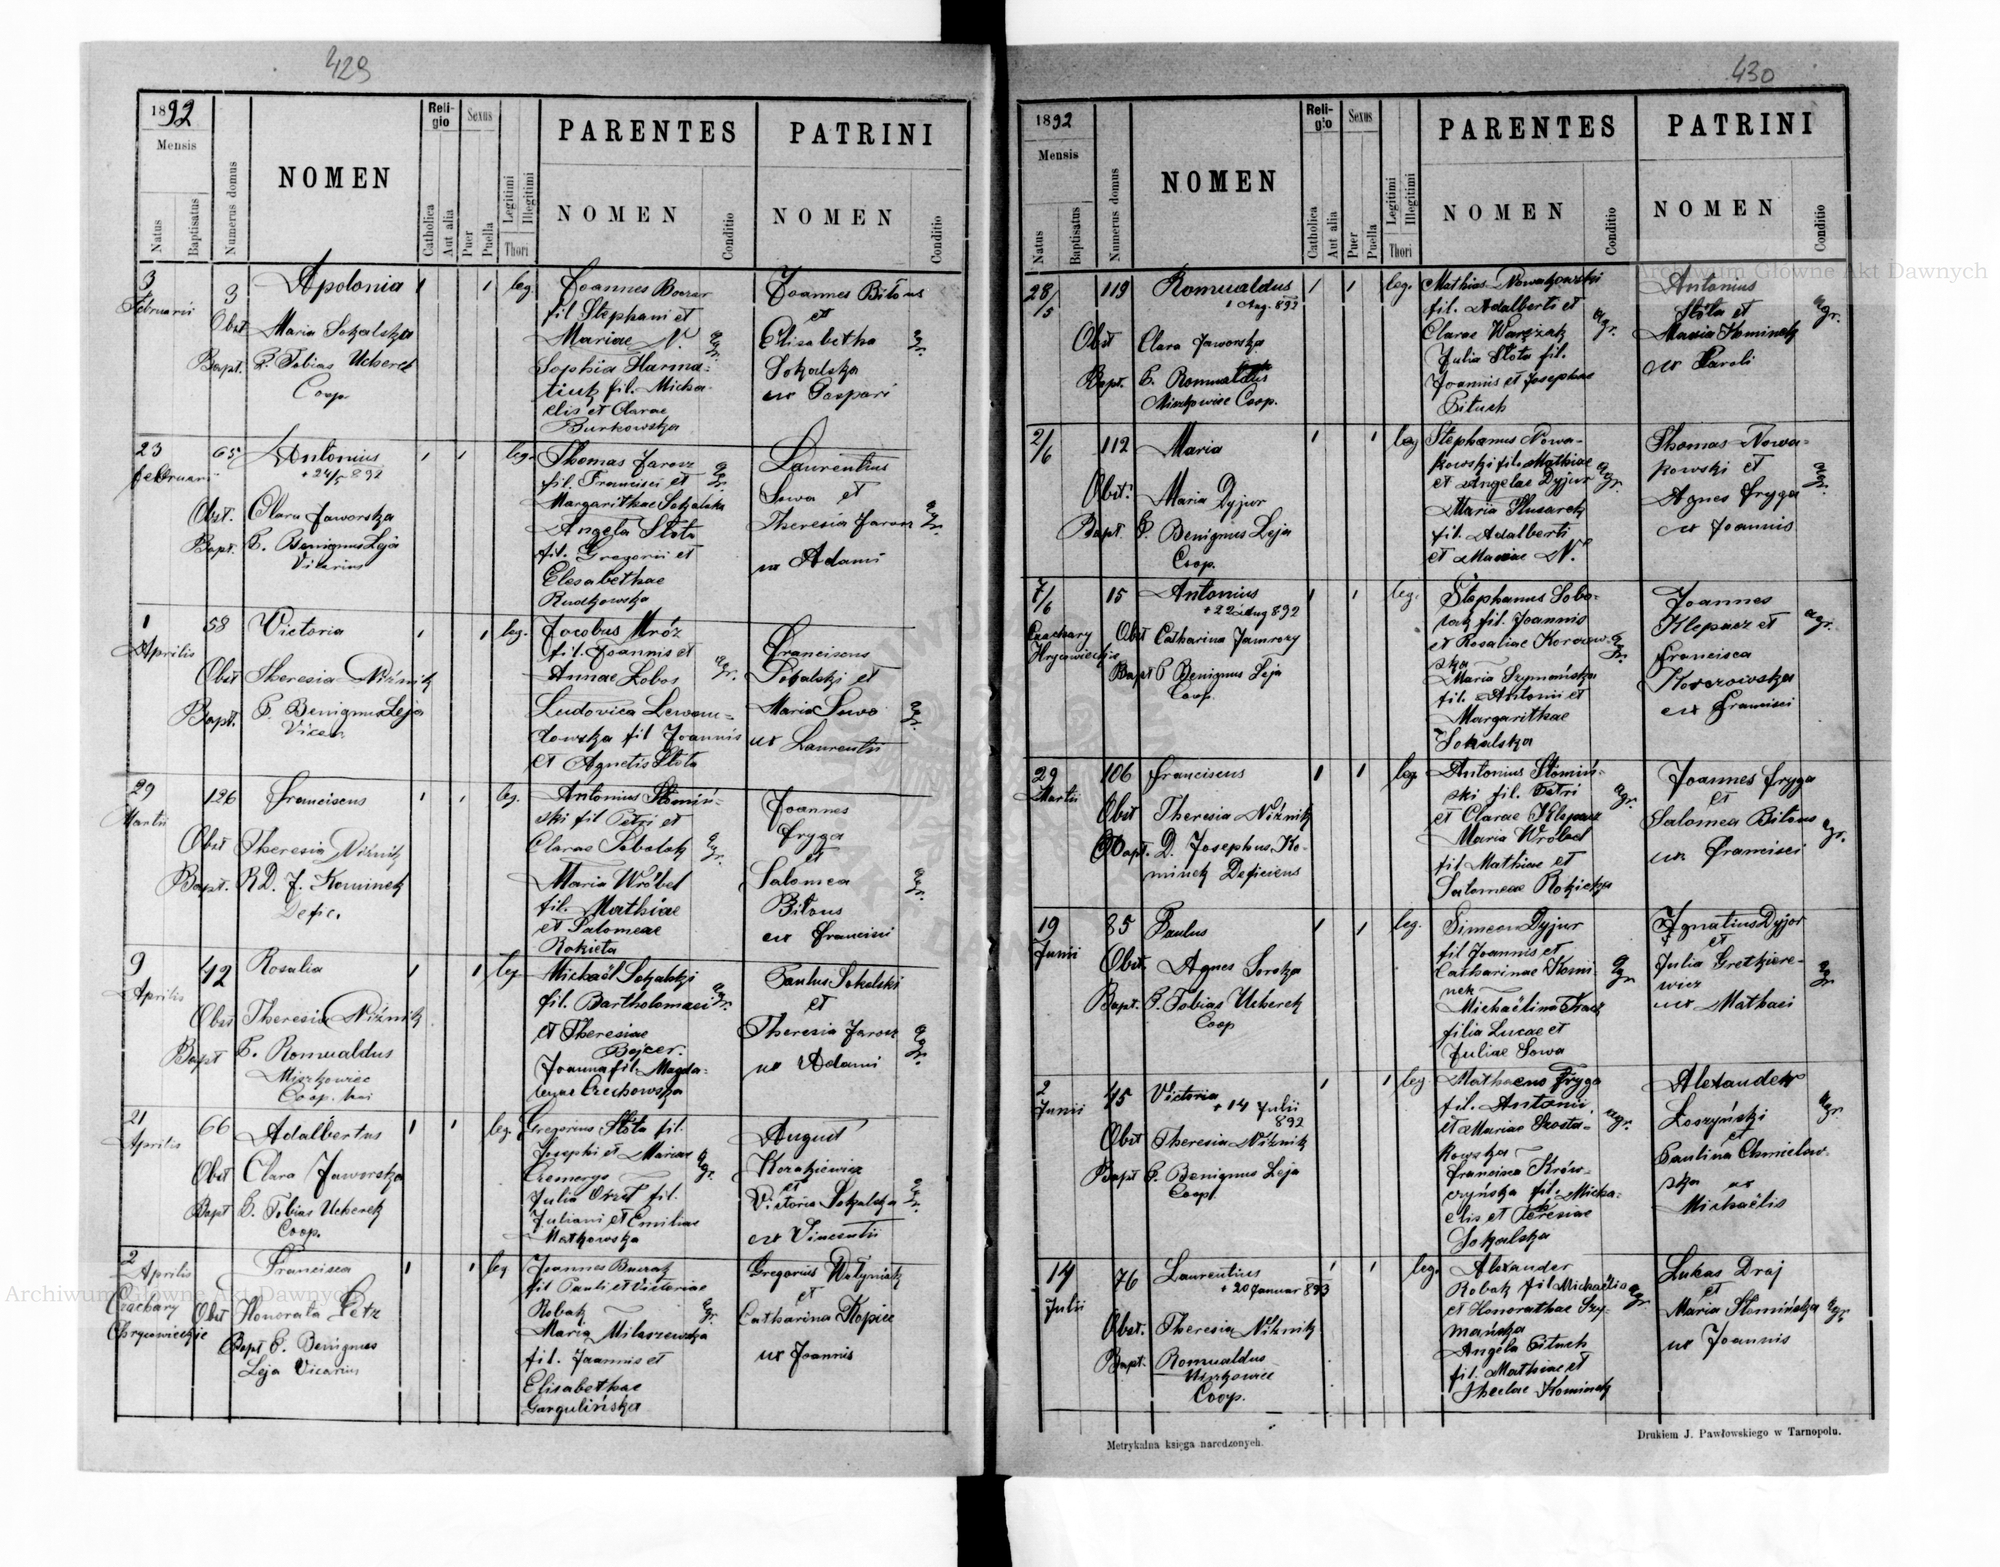 429
1892
Mensis
Natus
Baptisatus
Numerus domus
NOMEN
Religio
Catholica
Aut alia
Sexus
Puer
Puella
Legitimi
Illegitimi
Thori
PARENTES
NOMEN
Conditio
PATRINI
NOMEN
Conditio
3 Februarii
3
Apolonia
leg.
Obst Maria Sokalska
Bapt. P. Tobias Ucherek
Coop.
Joannes
fil Stephani et
Mariae N.
Sophia Harma-
tiuk fil. Micha-
elis et Clarae
Burkowska
agr.
Joannes Bitous
et
Elisabetha
Sokalska
ux Gaspari
agr.
23 februarii
65
Antonius
+ 24/5 892
leg.
Obst. Clara Jaworska
Bapt. P. Benignus Leja
Vicarius
Thomas Jarosz
fil. Francisci et
Margarithae Sokalska
Angela Słota
fil. Gregorii et
Elesabethae
Rudkowska
agr.
Laurentius
Sowa et
Theresia Jarosz
ux Adami
agr.
1 Aprilis
58
Victoria
leg.
Obst Theresia Niżnik
Bapt. P. Benignus Leja
Jacobus Mróz
fil. Joannis et
Annae Łobos
Ludovica Lewan-
dowska fil Joannis
et Agnetis Słota
agr.
Franciscus
Sokalski et
Maria Sowa
ux Laurentii
agr.
29 Martii
126
Franciscus
leg.
Obst Theresia Niżnik
Bapt. R.D. J. Kominek
Defic.
Antonius Słomiń-
ski fil Petri et
Clarae
Maria Wróbel
fil. Mathiae
et Salomeae
Rokieta
agr.
Joannes
Fryga
et
Salomea
Bitous
ux Francisci
agr.
9 Aprilis
42
Rosalia
leg.
Obst Theresia Niżnik
Bapt P. Romualdus
Miszkowiec
Coop.
Michaël Sokalski
fil. Bartholomaei
et Theresiae
Bojcer.
Joanna fil. Magda-
lenae Czechowska
agr.
Paulus Sokalski
et
Theresia Jarosz
ux Adami
agr.
21 Aprilis
66
Adalbertus
leg.
Obst Clara Jaworska
Bapt P. Tobias Ucherek
Coop.
Gregorius Słota fil.
Josephi et Mariae
Julia fil.
Juliani et Emiliae
Matkowska
agr.
August
et
Victoria Sokalska
ux Vincentii
agr.
2 Aprilis
Czachary
Francisca
leg
Obst Honorata Petz
Bapt P. Benignus
Leja Vicarius
Joannes
fil Pauli et Victoriae
Robak
Maria Milaszewska
fil. Joannis et
Elisabethae
Gargulińska
agr.
Gregorius Wołyniak
et
Catharina Kopiec
ux Joannis
430
1892
Mensis
Natus
Baptisatus
Numerus domus
NOMEN
Religio
Catholica
Aut alia
Sexus
Puer
Puella
Legitimi
Illegitimi
Thori
PARENTES
NOMEN
Conditio
PATRINI
NOMEN
Conditio
28/5
119
Romualdus
1 Aug. 892
leg.
Obst Clara Jaworska
Bapt. P. Romualdus
Miszkowiec Coop.
Mathias Nowakowski
fil. Adalberti et
Clarae Warczak
Julia Słota fil.
Joannis et Josephae
Pituch
agr.
Antonius
Słota et
Maria Kominek
ux Karoli
agr.
2/6
112
Maria
leg
Obst. Maria Dyjur
Bapt P. Benignus Leja
Coop.
Stephanus Nowa-
kowski fil. Mathiae
et Angelae Dyjur
Maria Slusarek
fil. Adalberti
et Mariae N.
agr.
Thomas Nowa-
kowski et
Agnes Fryga
ux Joannis
agr.
7/6
Czachary
15
Antonius
+ 22 Aug 892
leg.
Obst Catharina Jamrozy
Bapt P Benignus Leja
Coop.
Stephanus Sobo-
fil. Joannis
et Rosaliae
Maria Szymańska
fil. Antonii et
Margarithae
Sokalska
agr.
Joannes
Klepacz et
Francisca
ux Francisci
agr.
29 Martii
106
Franciscus
leg
Obst Theresia Niżnik
Bapt. D. Josephus Ko-
minek Deficiens
Antonius Słomiń-
ski fil. Petri
et Clarae Klepacz
Maria Wróbel
fil. Mathiae et
Salomeae Rokicka
agr.
Joannes Fryga
et
Salomea Bitous
ux Francisci
agr.
19 Junii
85
Paulus
leg.
Obst. Agnes Soroka
Bapt. P. Tobias Ucherek
Coop
Simeon Dyjur
fil Joannis et
Catharinae Komi-
nek
Michaëlina Tkacz
filia Lucae et
Juliae Sowa
agr.
Ignatius Dyjor
et
Julia
ux Mathaei
agr.
2 Junii
45
Victoria
+ 14 Julii
892
leg.
Obst Theresia Niżnik
Bapt P. Benignus Leja
Coop.
Mathaeus Fryga
fil. Antonii
et Mariae
kowska
Francisca Krów-
czyńska fil. Micha-
elis et Teresiae
Sokalska
agr.
Alexander
Łoszyński
et
Paulina Chmielow-
ska ux
Michaëlis
agr.
14 Julii
76
Laurentius
+ 20 Januar 893
leg.
Obst. Theresia Niżnik
Bapt. Romualdus
Miszkowiec
Coop.
Alexander
Robak fil Michaëlis
et Honorathae Szy-
mańska
Angela Pituch
fil. Mathiae et
Theclae Kominek
agr.
Lukas Draj
et
Maria Słomińska
ux Joannis
agr.
Metrykalna księga narodzonych.
Drukiem J. Pawłowskiego w Tarnopolu.
Archiwum Główne Akt Dawnych
Archiwum Główne Akt Dawnych